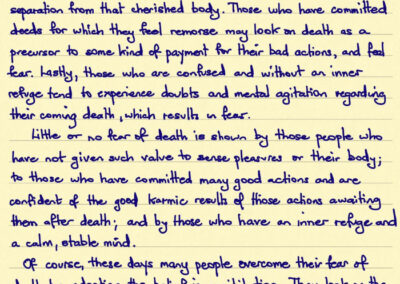 separation from that cherished body. Those who have committed
deeds for which they feel remorse may look on death as a
precursor to some kind of payment for their bad actions, and feel
fear. Lastly, those who are confused and without an inner
refuge tend to experience doubts and mental agitation regarding
their coming death, which results in fear.
Little or no fear of death is shown by those people who
have not given such value to sense pleasures or their body;
to those who have committed many good actions and are
confident of the good karmic results of those actions awaiting
them after death; and by those who have an inner refuge and
a calm, stable mind.
Of course, these days many people overcome their fear of